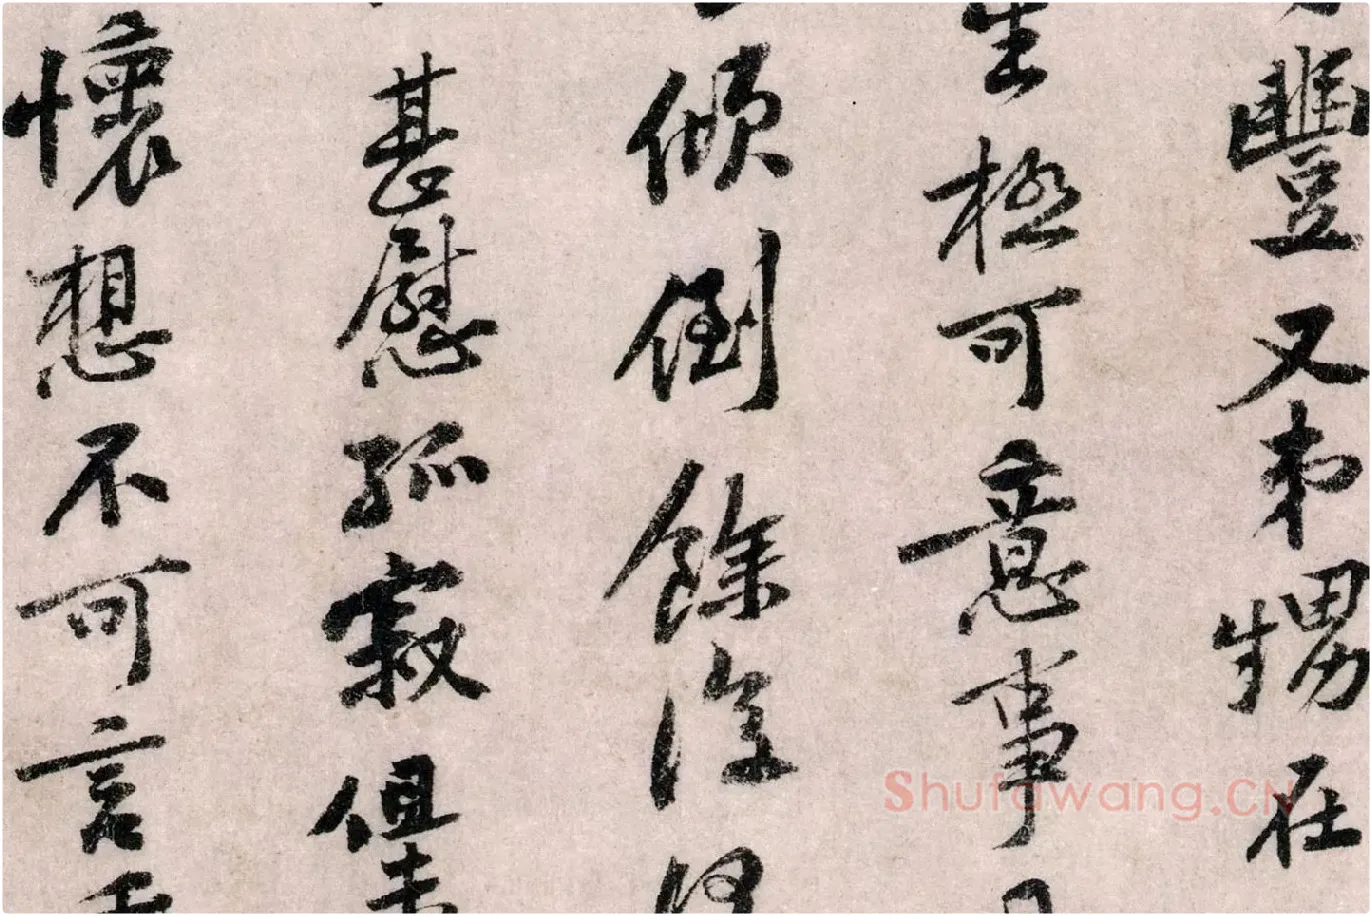 豐又弟甥在
生極可意事
傾倒餘
甚慰孤寂但
懷想不可言
Shufawang.CN